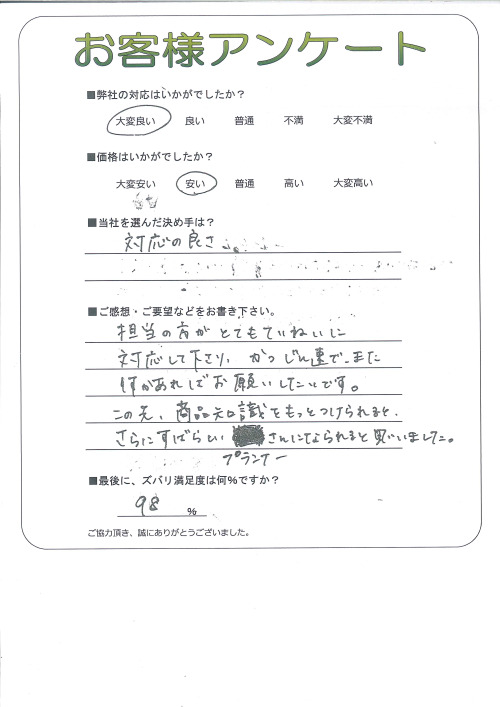 お客様アンケート
■弊社の対応はいかがでしたか？
大変良い 良い 普通 不満 大変不満
■価格はいかがでしたか？
大変安い 安い 普通 高い 大変高い
■当社を選んだ決め手は？
対応の良さ
■ご感想・ご要望などをお書き下さい。
担当の方がとてもていねいに
対応して下さり、かつじん速で、また
何かあればお願いしたいです。
この先、商品知識をもっとつけられると、
さらにすばらしい さんになられると思いました。
プランナー
■最後に、ズバリ満足度は何%ですか？
98 %
ご協力頂き、誠にありがとうございました。